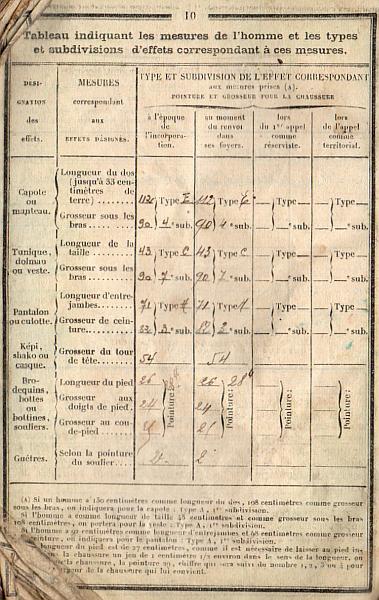 10
Tableau indiquant les mesures de l'homme et les types
et subdivisions d'effets correspondant à ces mesures.
DÉSI-
GNATION
des
effets.
MESURES
correspondant
aux
EFFETS DÉSIGNÉS.
TYPE ET SUBDIVISION DE L'EFFET CORRESPONDANT
aux mesures prises (A).
POINTURE ET GROSSEUR POUR LA CHAUSSURE
à l'époque
de
l'incorpo-
ration.
au moment
du renvoi
dans
ses foyers.
lors
du 1er appel
comme
réserviste.
lors
de l'appel
comme
territorial.
Capote
ou
manteau.
Longueur du dos
(jusqu'à 33 cen-
timètres de
terre)
Type Type Type Type
Grosseur sous les
bras
90 4e sub. 90 4e sub. e sub. e sub.
Tunique,
dolman
ou veste.
Longueur de la
taille
43 Type C 43 Type C Type Type
Grosseur sous les
bras
90 7e sub. 90 7e sub. e sub. e sub.
Pantalon
ou culotte.
Longueur d'entre-
jambes
71 Type 71 Type Type Type
Grosseur de cein-
ture
e sub. 2e sub. e sub. e sub.
Képi,
shako ou
casque.
Grosseur du tour
de tête
54 54
Bro-
dequins,
bottes
ou
bottines,
souliers.
Longueur du pied
26 26 28
Grosseur aux
doigts de pied
24 24
Grosseur au cou-
de-pied
Pointure: Pointure: Pointure: Pointure:
Guêtres.
Selon la pointure
du soulier
2
(A) Si un homme a 150 centimètres comme longueur du dos, 108 centimètres comme grosseur
sous les bras, on indiquera pour la capote : Type A, 1re subdivision.
Si l'homme a comme longueur de taille 48 centimètres et comme grosseur sous les bras
108 centimètres, on portera pour la veste : Type A, 1re subdivision.
Si l'homme a 92 centimètres comme longueur d'entrejambes et 98 centimètres comme grosseur
ceinture, on indiquera pour le pantalon : Type A, 1re subdivision.
longueur du pied est de 27 centimètres, comme il est nécessaire de laisser au pied
la chaussure un jeu de 1 centimètre 1/2 environ dans le sens de la longueur, on
la chaussure, la pointure 29, chiffre qui sera suivi du nombre 1, 2, 3 ou 4 pour
de la chaussure qui lui convient.